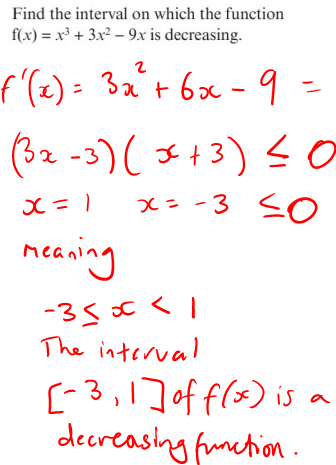 Find the interval on which the function
f(x) = x³ + 3x² – 9x is decreasing.
f'(x) = 3x² + 6x - 9 =
(3x - 3)(x + 3) ≤ 0
x = 1 x = -3 ≤0
meaning
-3 ≤ x < 1
The interval
[-3, 1] of f(x) is a
decreasing function.